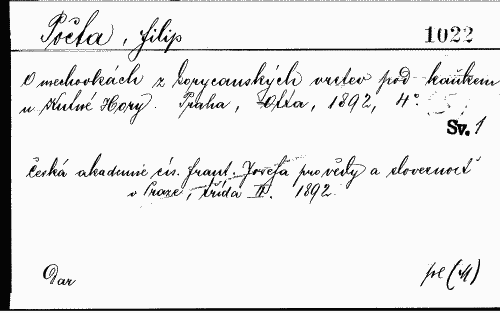 Počta, Filip 1022
O mechovkách z korycanských vrstev pod kaňkem
u Kutné Hory. Praha, Otta, 1892, 4°.
Sv. 1
Česká akademie cís. Frant. Josefa pro vědy a slovesnost
v Praze, třída II. 1892.
Dar